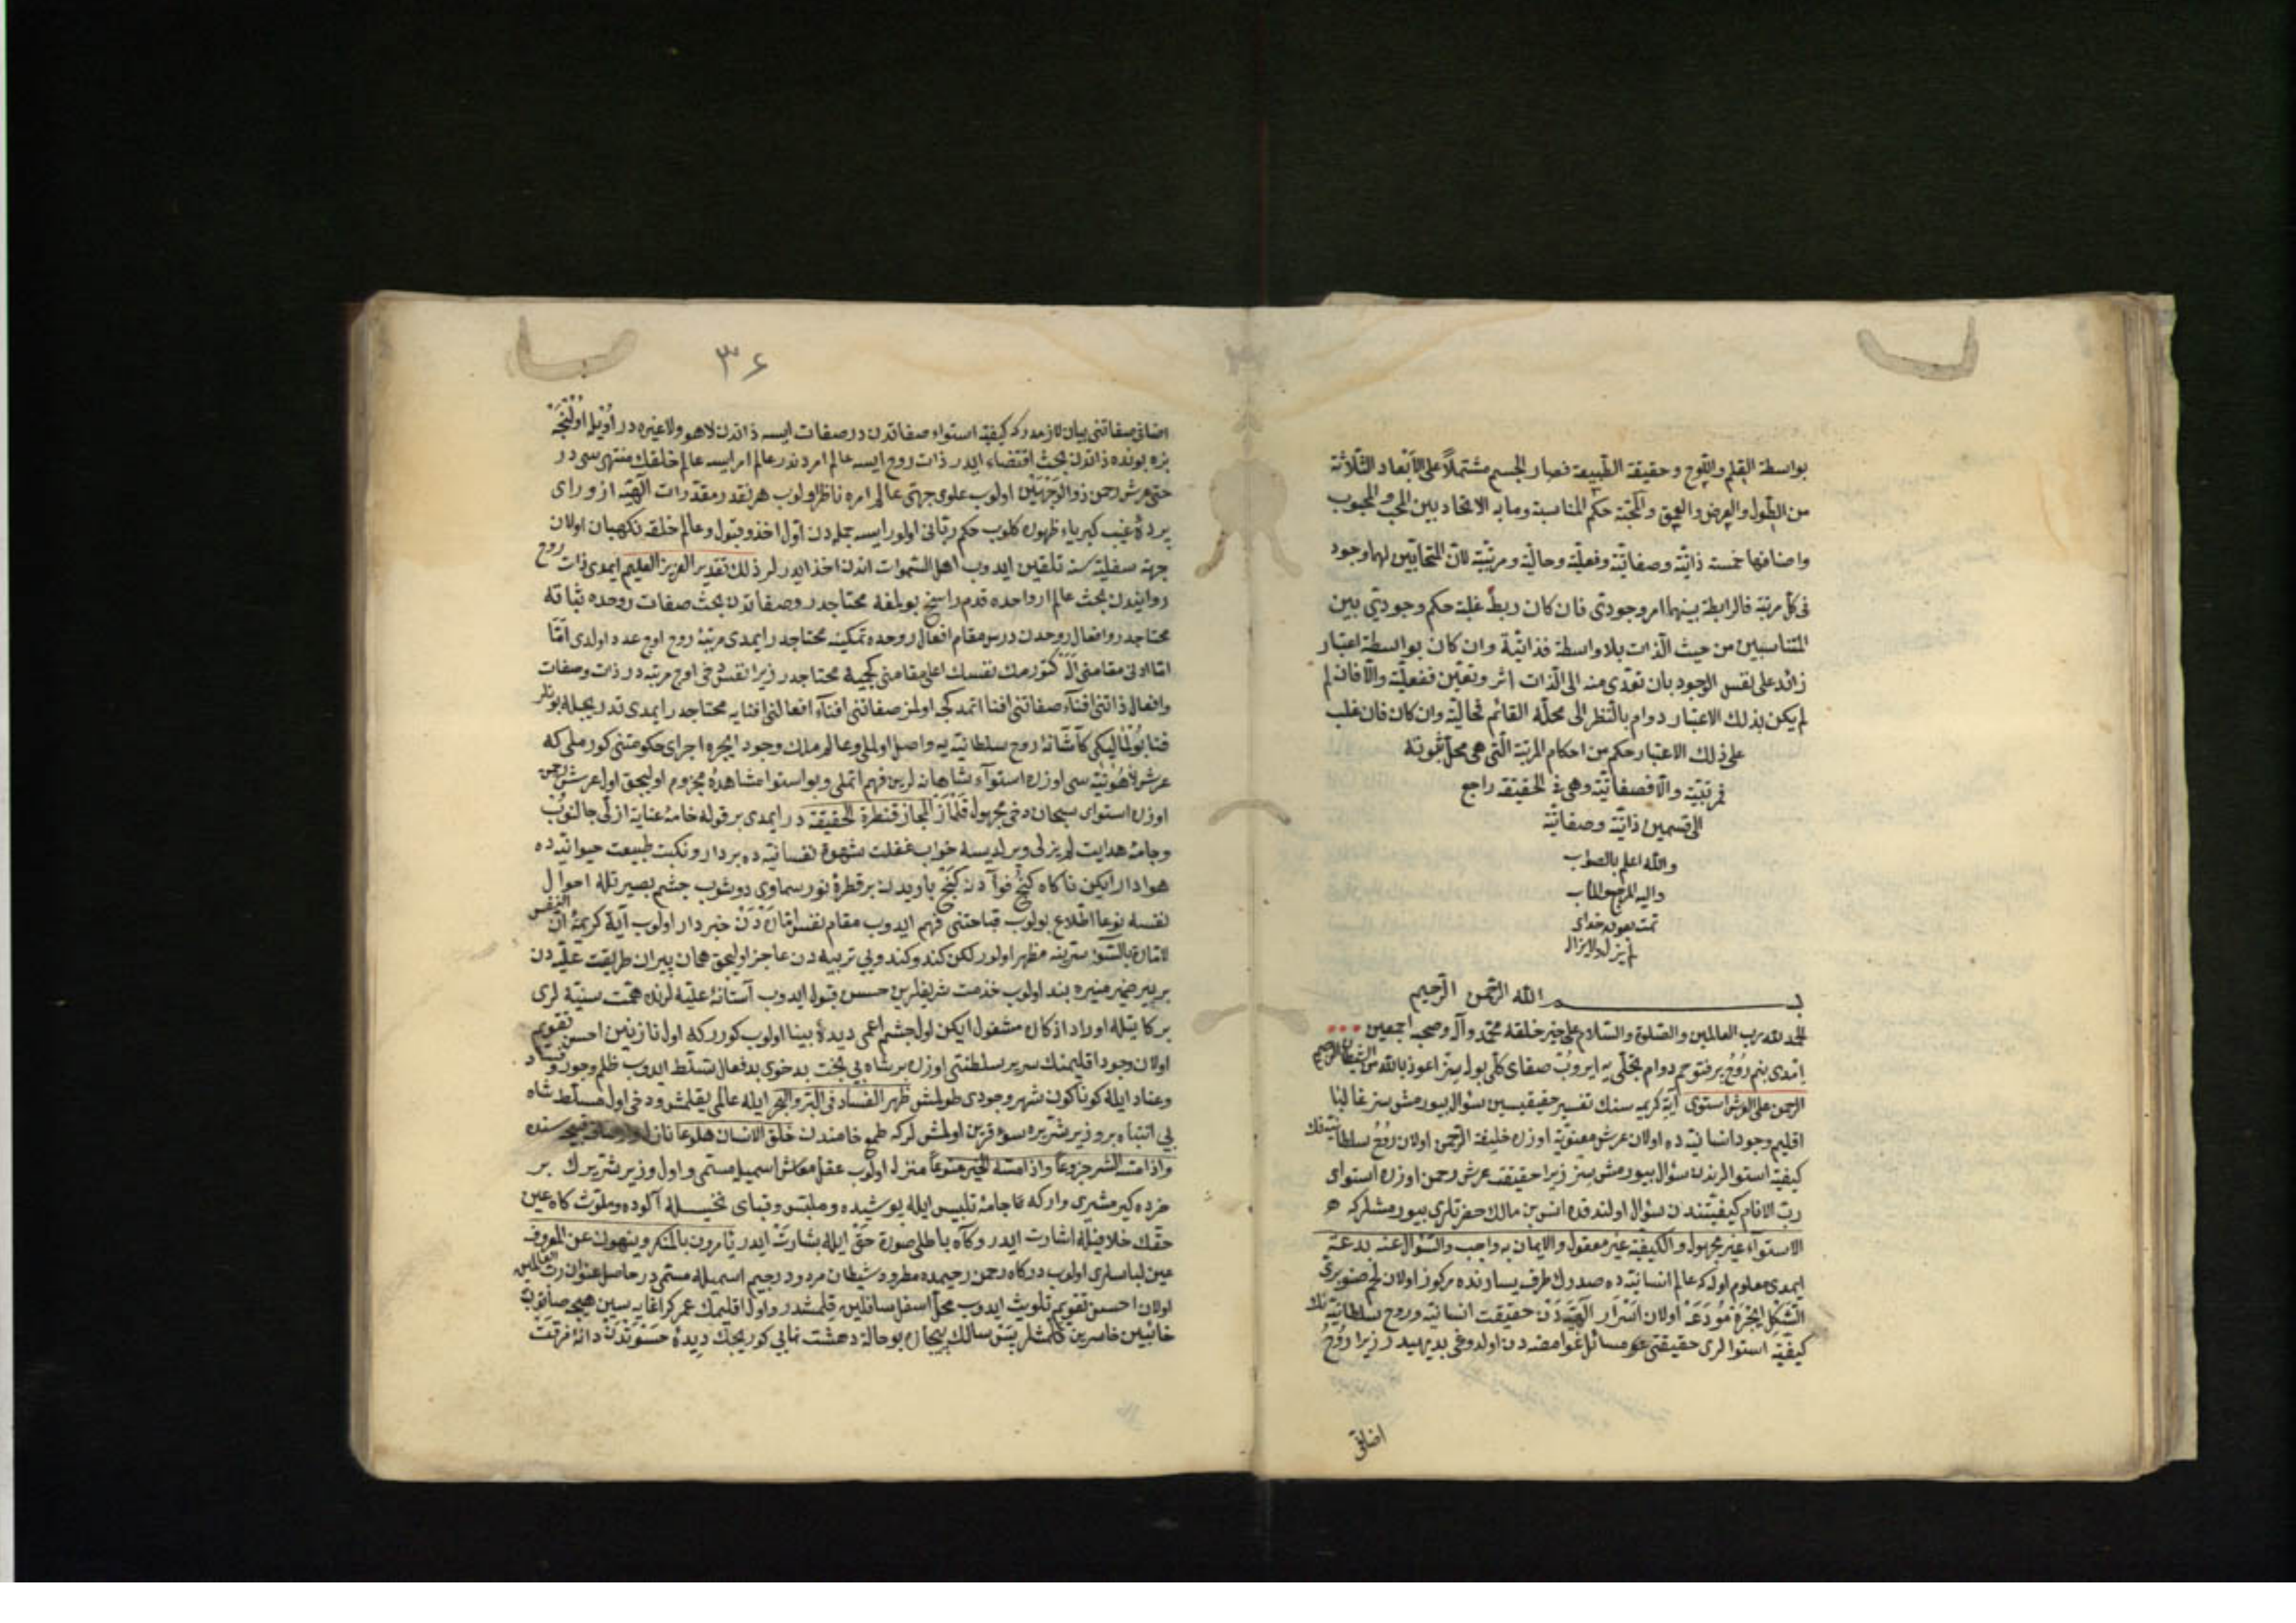 بواسطة القلم واللوح وحقيقة الطبيعة فصار الجسم مشتملاً على الأبعاد الثلاثة
من الطول والعرض والعمق والمحبة حكم المناسبة وما به الاتحاد بين المحب والمحبوب
واصنافها خمسة ذاتية وصفاتية وفعلية وحالية ومرتبية لان المتحابين لهما وجود
فى كل مرتبة فالرابطة بينهما امر وجودى فان كان ربط غلبة حكم وجودى بين
المتناسبين من حيث الذات بلا واسطة فذاتية وان كان بواسطة اعتبار
زائد على نفس الوجود بان تعدى منه الى الذات اثر وتعين ففعلية والا فان لم
لم يكن بذلك الاعتبار دوام بالنظر الى محله القائم فحالية وان كان فان غلب
على ذلك الاعتبار حكم من احكام المرتبة التى هى محل ثبوته
فمرتبية والا فصفاتية وهى فى الحقيقة راجع
الى قسمين ذاتية وصفاتية
والله اعلم بالصواب
واليه المرجع والمآب
تمت بعون خداى
لم يزل ولا يزال
بسم الله الرحمن الرحيم
الحمد لله رب العالمين والصلوة والسلام على خير خلقه محمد وآله وصحبه اجمعين
افندى بنم روح پرفتوحم دوام تجلى يه ايروب صفاى كلى بوله سز اعوذ بالله من الشيطان الرجيم
الرحمن على العرش استوى آية كريمه سنك تفسير حقيقيسين سؤال بيورمش سز غالبا
اقليم وجود انسانيه ده اولان عرش معنويه اوزره خليفة الرحمن اولان روح سلطانيه نك
كيفية استوالرندن سؤال بيورمش سز زيرا حقيقت عرش رحمن اوزره استواى
رب الانام كيفيتندن سؤال اولندقده انس بن مالك حضرتلرى بيورمشلركه
الاستواء غير مجهول والكيفية غير معقول والايمان به واجب والسؤال عنه بدعة
ايمدى معلوم اوله كه عالم انسانيه ده صدرك طرف يسارنده مركوز اولان لحم صنوبرى
الشكل ايچره مودعه اولان اسرار الهيه دن حقيقت انسانيه وروح سلطانيه نك
كيفية استوالرى حقيقتى مسائل غوامضه دن اولدوغى بديهيدر زيرا روح
اضافى
٣٤
اضافى صفاتنى بيان لازمدركه كيفية استواء صفاتدن در صفات ايسه ذاتدن لاهو ولاغيره در اويله اولنجه
بزه بونده ذاتدن بحث اقتضاء ايدر ذات روح ايسه عالم امردندر عالم امر ايسه عالم خلقك منتهىسى در
حتى عرش رحمن ذو الوجهين اولوب علوى جهتى عالم امره ناظر اولوب هر نقدر مقدرات الهيه از وراى
پردۀ غيب كبرياء ظهوره كلوب حكم ربانى اولور ايسه جمله دن اول اخذ وقبول وعالم خلقه نكهبان اولان
جهة سفليه سنه تلقين ايدوب اهل السموات اندن اخذ ايدرلر ذلك تقدير العزيز العليم ايمدى ذات روح
روانيدن بحث عالم ارواحده قدم راسخ بولمغه محتاجدر وصفاتدن بحث صفات روحده ثباته
محتاجدر وافعال روحدن درس مقام افعال روحده تمكينه محتاجدر ايمدى مرتبۀ روح اوج عدد اولدى اما
اما ادنى مقامنى اله كتورمك نفسك اعلى مقامنى كچميه محتاجدر زيرا نفس دخى اوچ مرتبه در ذات وصفات
وافعال ذاتنى افناء صفاتنى افنا اتمدكجه اولمز صفاتنى افناء افعالنى افنايه محتاجدر ايمدى تدريجله بونلر
فنا بولمالى كه كاشانۀ روح سلطانيه يه واصل اولملى وعالم ملك وجود ايچره اجراى حكومتنى كورملى كه
عرش لاهوتيه سى اوزره استواء شاهانه لرين فهم اتملى وبو استوا مشاهده مجزوم اوليجق اول عرش رحمن
اوزره استواى سبحان دخى مجهول قلماز المجاز قنطرة الحقيقة در ايمدى بر قوله خامۀ عناية ازلى جالنوب
وجامۀ هدايت لم يزلى ويرلديسه خواب غفلت شهوة نفسانيه ده بردار ونكبت طبيعت حيوانيه ده
هوادار ايكن ناكاه كنج فوآدن كنج ياريدن بر قطرۀ نور سماوى دوشوب چشم بصيرتله احوال
نفسه نوعا اطلاع بولوب قباحتنى فهم ايدوب مقام نفس اماره دن خبردار اولوب آية كريمۀ ان النفس
لامارة بالسوء سرينه مظهر اولور لكن كندو كندويى تربيه دن عاجز اوليجق همان پيران طريقت عليه دن
بر پير ضمير منيره بند اولوب خدمت شريفلرين حسن قبول ايدوب آستانۀ عليه لرنده همت سنيه لرى
بركاتيله اوراد اذكاره مشغول ايكن اول چشم اعمى ديدۀ بينا اولوب كوررکه اول نازنين احسن تقويم
اولان وجود اقليمنك سرير سلطنتى اوزره بر شاه بى بخت بدخوى بدفعال تسلط ايدوب ظلم وجور وفساد
وعناد ايله كوناكون شهر وجودى طولمش ظهر الفساد فى البر والبحر ايله عالمى يقلمش ودخى اول مسلط شاه
بى انتباه بر وزير شريره سوء قرين اولمش لركه طمع خامندن خلق الانسان هلوعا
واذا مسه الشر جزوعا واذا مسه الخير منوعا منزله اولوب عقل معاش اسميله مسمى واول وزير شريرك بر
خرده كير مشيرى واركه تا جامۀ تلبيس ايله پوشيده وملبس وقباى ايله آلوده وملوث كاه عين
حقك خلافيله اشارت ايدر وكاه باطلى صورة حق ايله بشارت ايدر يأمرون بالمنكر وينهون عن المعروف
عين لباسلرى اولوب دركاه رحمن رحيمده مطرود شيطان مردود رجيم اسميله مسمى در حاصل عنوان رب العالمين
اولان احسن تقويم تلويث ايدوب محل اسفل سافلين قلمشدر واول اقليمك عمركز اغايه سين هيچه صايوب
خائبين خاسرين قلمشلر پس سالك بيچاره بو حالۀ دهشت نمايى كوريجك ديدۀ دانۀ فرقت